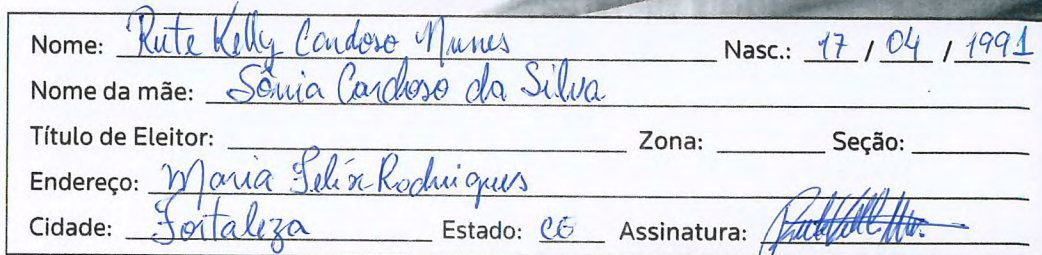 Nome: Rute Kelly Cardoso Nunes Nasc.: 17 / 04 / 1991
Nome da mãe: Sônia Cardoso da Silva
Título de Eleitor: Zona: Seção:
Endereço: Maria Felix Rodrigues
Cidade: Fortaleza Estado: CE Assinatura: